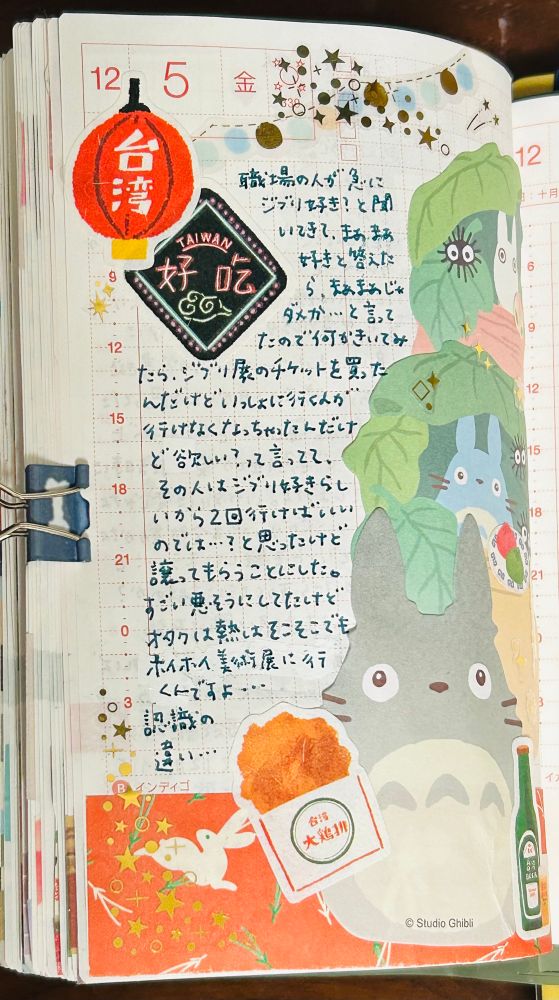 12 5 金
台湾
TAIWAN
好吃
職場の人が急に
ジブリ好き?と聞
いてきて、まぁまぁ
好きと答えた
ら、まぁまぁじゃ
ダメか…と言って
たので何かきいてみ
たら、ジブリ展のチケットを買った
んだけどいっしょに行く人が
行けなくなっちゃったんだけ
ど欲しい?って言ってて、
その人はジブリ好きらし
いから2回行けばいい
のでは…?と思ったけど
譲ってもらうことにした。
すごい悪そうにしてたけど
オタクは熱はそこそこでも
ホイホイ美術展に行
くんですよ…
認識の
違い…
9
12
15
18
21
0
3
B インディゴ
台湾
大鶏排
© Studio Ghibli
12